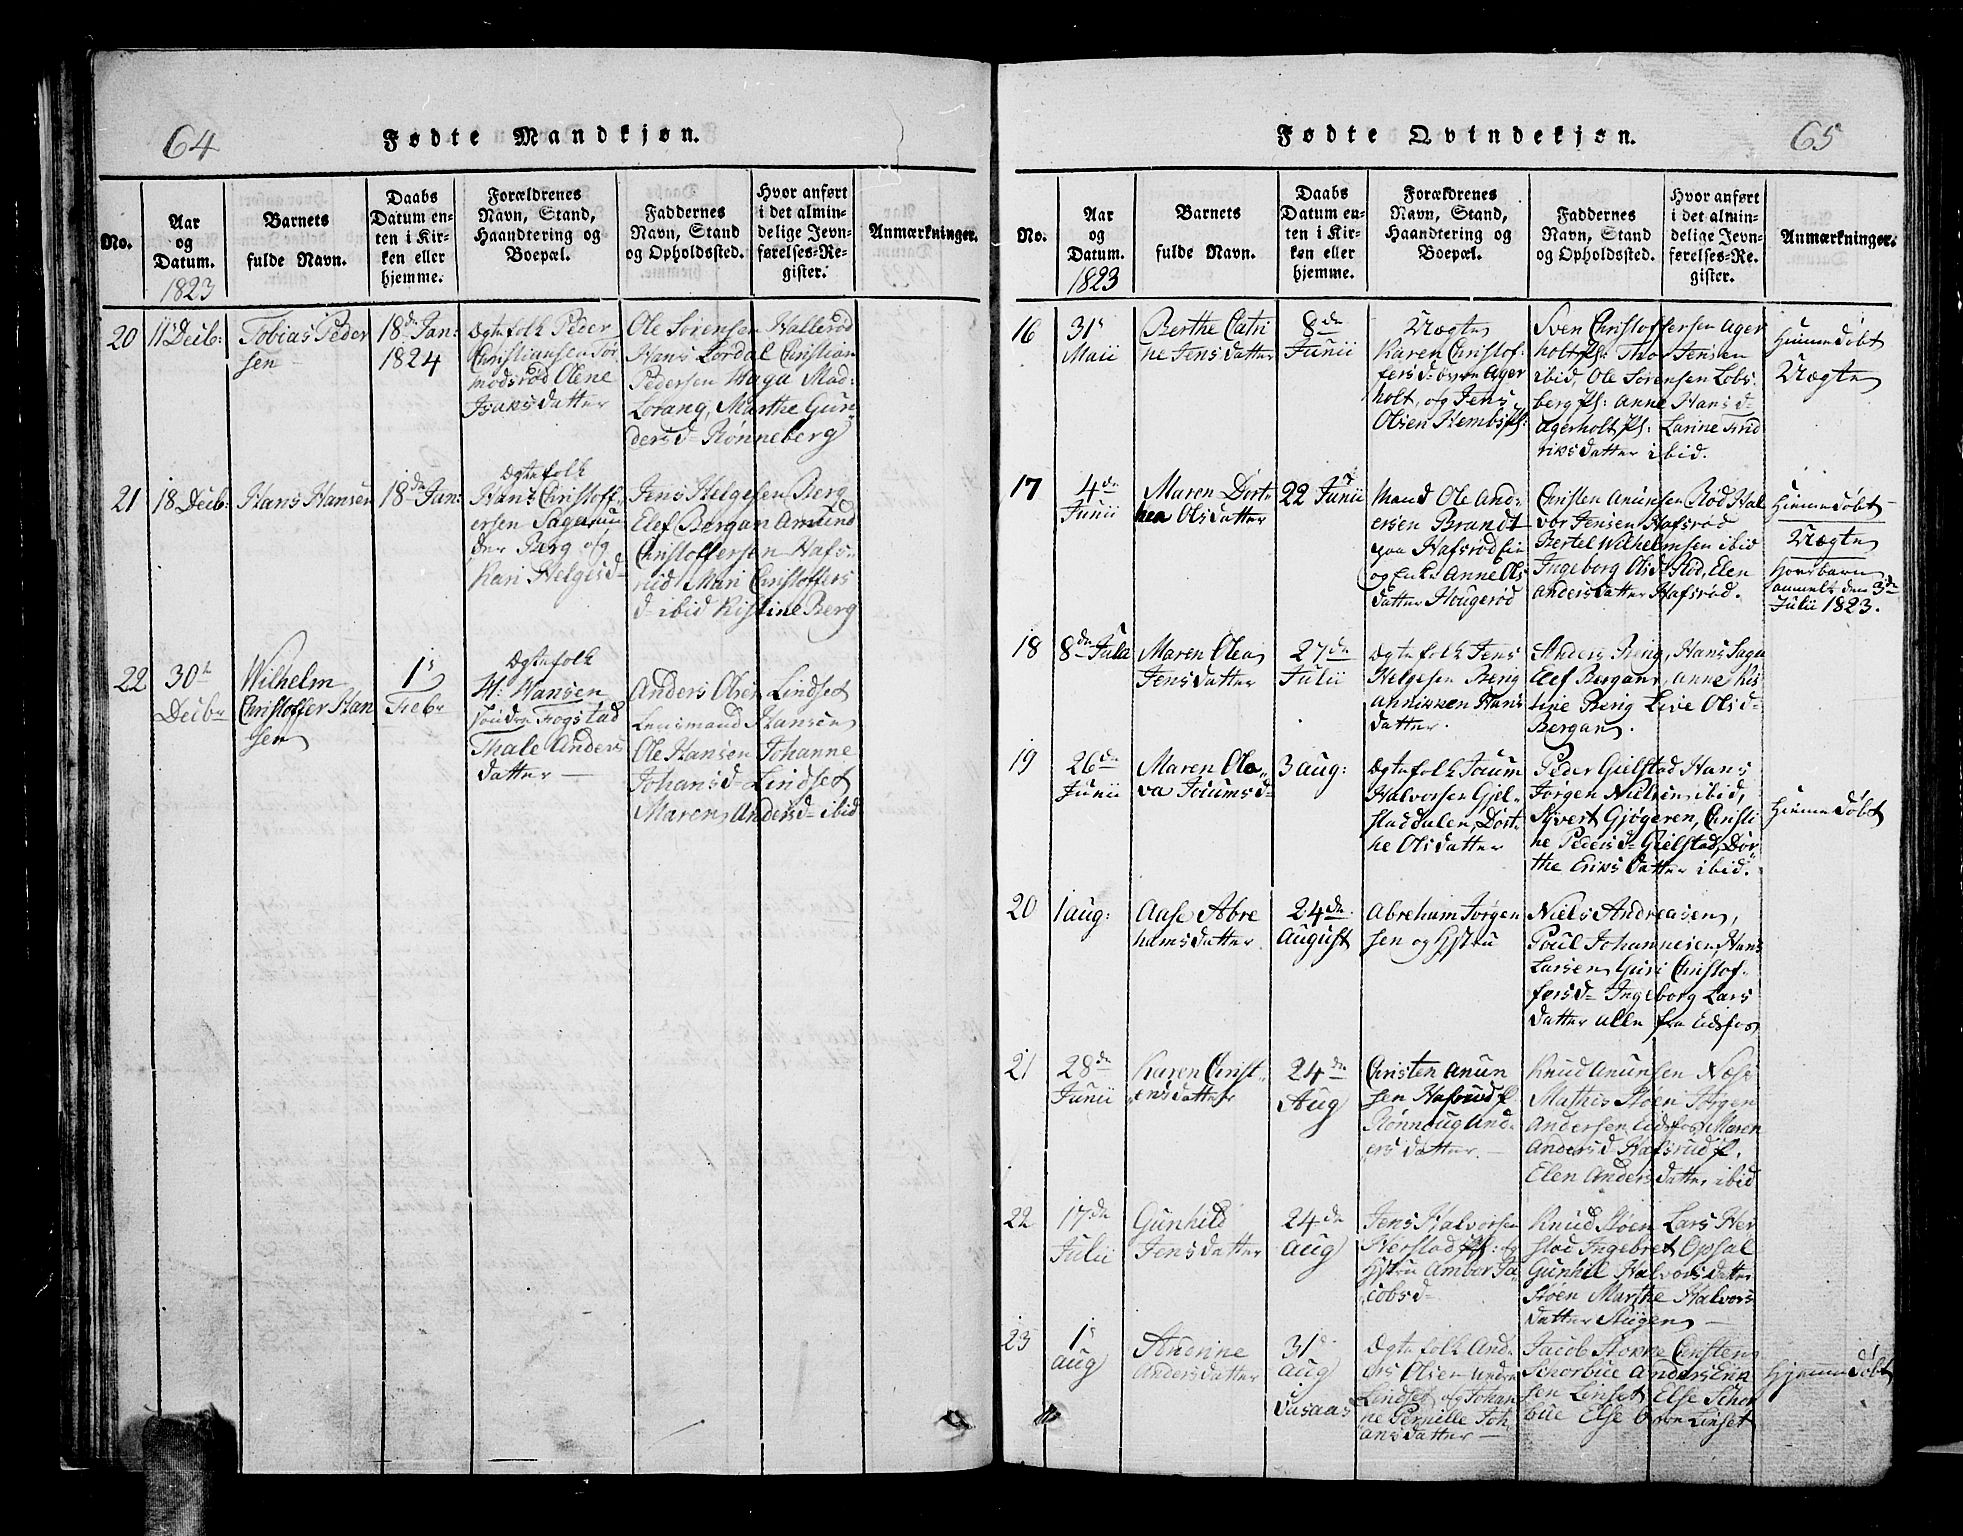 64
Fødte Mandkjøn.
No.
Aar
og
Datum.
1823
Barnets
fulde Navn.
Daabs
Datum en-
ten i Kir-
ken eller
hjemme.
Forældrenes
Navn, Stand,
Haandtering og
Boepæl.
Faddernes
Navn, Stand
og Opholdssted.
Hvor anført
i det almin-
delige Jevn-
førelses-Re-
gister.
Anmærkninger.
20
11 Decbr:
Tobias Peder
sen
18de Jan:
1824
Ægtefolk Peder
Christiansen Tor
modsrød Olene
Isaksdatter
Ole Sørensen Hallerød
Hans Lordal Christian
Pedersen Haga Mad:
Lorang, Marthe Gun
dersd Rønneberg
21
18 Decb:
Hans Hansen
18de Jan:
Ægtefolk
Hans Christoff
ersen Saga un
der Berg og
Kari Helgesd
Jens Helgesen Berg
Elef Bergan Amund
Christoffersen Hafs
rud Mari Christoffers
d ibid Kistine Berg
22
30te
Decbr
Wilhelm
Christoffer Han
sen
1ste
Febr
Ægtefolk
H: Hansen
søndre Fogstad
Thale Anders
datter
Anders Olsen Lindset
Lensmand Hansen
Ole Hansen Johanne
Johansd Lindset
Maren Andersd ibid
Fødte Qvindekjøn.
65
No.
Aar
og
Datum.
1823
Barnets
fulde Navn.
Daabs
Datum en-
ten i Kir-
ken eller
hjemme.
Forældrenes
Navn, Stand,
Haandtering og
Boepæl.
Faddernes
Navn, Stand
og Opholdssted.
Hvor anført
i det almin-
delige Jevn-
førelses-Re-
gister.
Anmærkninger.
16
31
Maii
Berthe Catri
ne Jensdatter
8de
Junii
Uægte
Karen Christof-
fersd øvre Ager
holt, og Jens
Olsen Kembs Pl:
Sven Christoffersen Ager
holt Pl: Thor Jensen
ibid, Ole Sørensen Lobs
berg Pl: Anne Hansd
Agerholt Pl: Larine Frid
riksdatter ibid.
Hiemmedøbt
Uægte
17
4de
Junii
Maren Dort
hea Olsdatter
22 Junii
Mand Ole And-
ersen Brandt
paa Hafsrød Eie
og Enke Anne Ols
datter Hougerød
Christen Anunsen Rød Hal
vor Jensen Hafsrød
Bertel Wilhelmsen ibid
Ingeborg Olsd Rød, Elen
Andersdatter Hafsrød.
Hiemmedøbt
Uægte
Horebarn
anmeldt den 3de
Julii 1823.
18
8de Jula
Maren Olea
Jensdatter
27de
Julii
Ægtefolk Jens
Helgesen Berg
Annikken Hans
datter.
Anders Berg, Hans Saga
Elef Bergan, Anne Kis
tine Berg Live Olsd
Bergan.
19
26de
Junii
Maren Ola
va Joramsd
3 Aug:
Ægtefolk Joram
Halvorsen Gjel-
staddalen, Dort
he Olsdatter
Peder Gielstad Hans
Jørgen Nielsen ibid,
Syvert Gjøgeren, Christi
ne Pedersd Gielstad, Dor
the Eriksdatter ibid.
Hiemmedøbt
20
1 Aug:
Aase Abre
hamsdatter
24de
August
Abreham Jørgen
sen og Hystru
Niels Andreasen,
Poul Johannesen Hans
Larsen Guri Christof-
fersd Ingeborg Lars
datter alle fra Eidsfos
21
28de
Junii
Karen Christ-
ensdatter
24de
Aug
Christen Anun
sen Hafsrud f.
Rønnaug And-
ersdatter.
Knud Anunsen Næse
Mathis Støen Jørgen
Andersen Eidsfos Maren
Andersd Hafsrud f.
Elen Andersdatter ibid
22
17de
Julii
Gunhild
Jensdatter
24de
Aug
Jens Halvorsen
Herstad Pl: og
Hystru Amber Ja
cobsd
Knud Støen Lars Her
stad Ingebret Opsal
Gunhil Halvorsdatter
Støen Marthe Halvors
datter Riigen
23
1
Aug
Andrine
Andersdatter
31
Aug
Vasaas
Ægtefolk And-
ers Olsen nedre
Lindset, og Johan
ne Pernille Joh
ansdatter
Jacob Stokke Christen
Schorbue Anders Erik
sen Linset Else Schor
bue Else øvre Linset
Hjemmedøbt